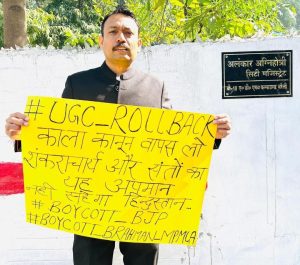 अलंकार अग्निहोत्री
सिटी मजिस्ट्रेट
#UGC_ROLLBACK
काला कानून वापस लो
शंकराचार्य और संतों का
यह अपमान
नहीं सहेगा हिन्दुस्तान-
#BOYCOTT_BJP
#BOYCOTT_BRAHMAN_MP,MLA